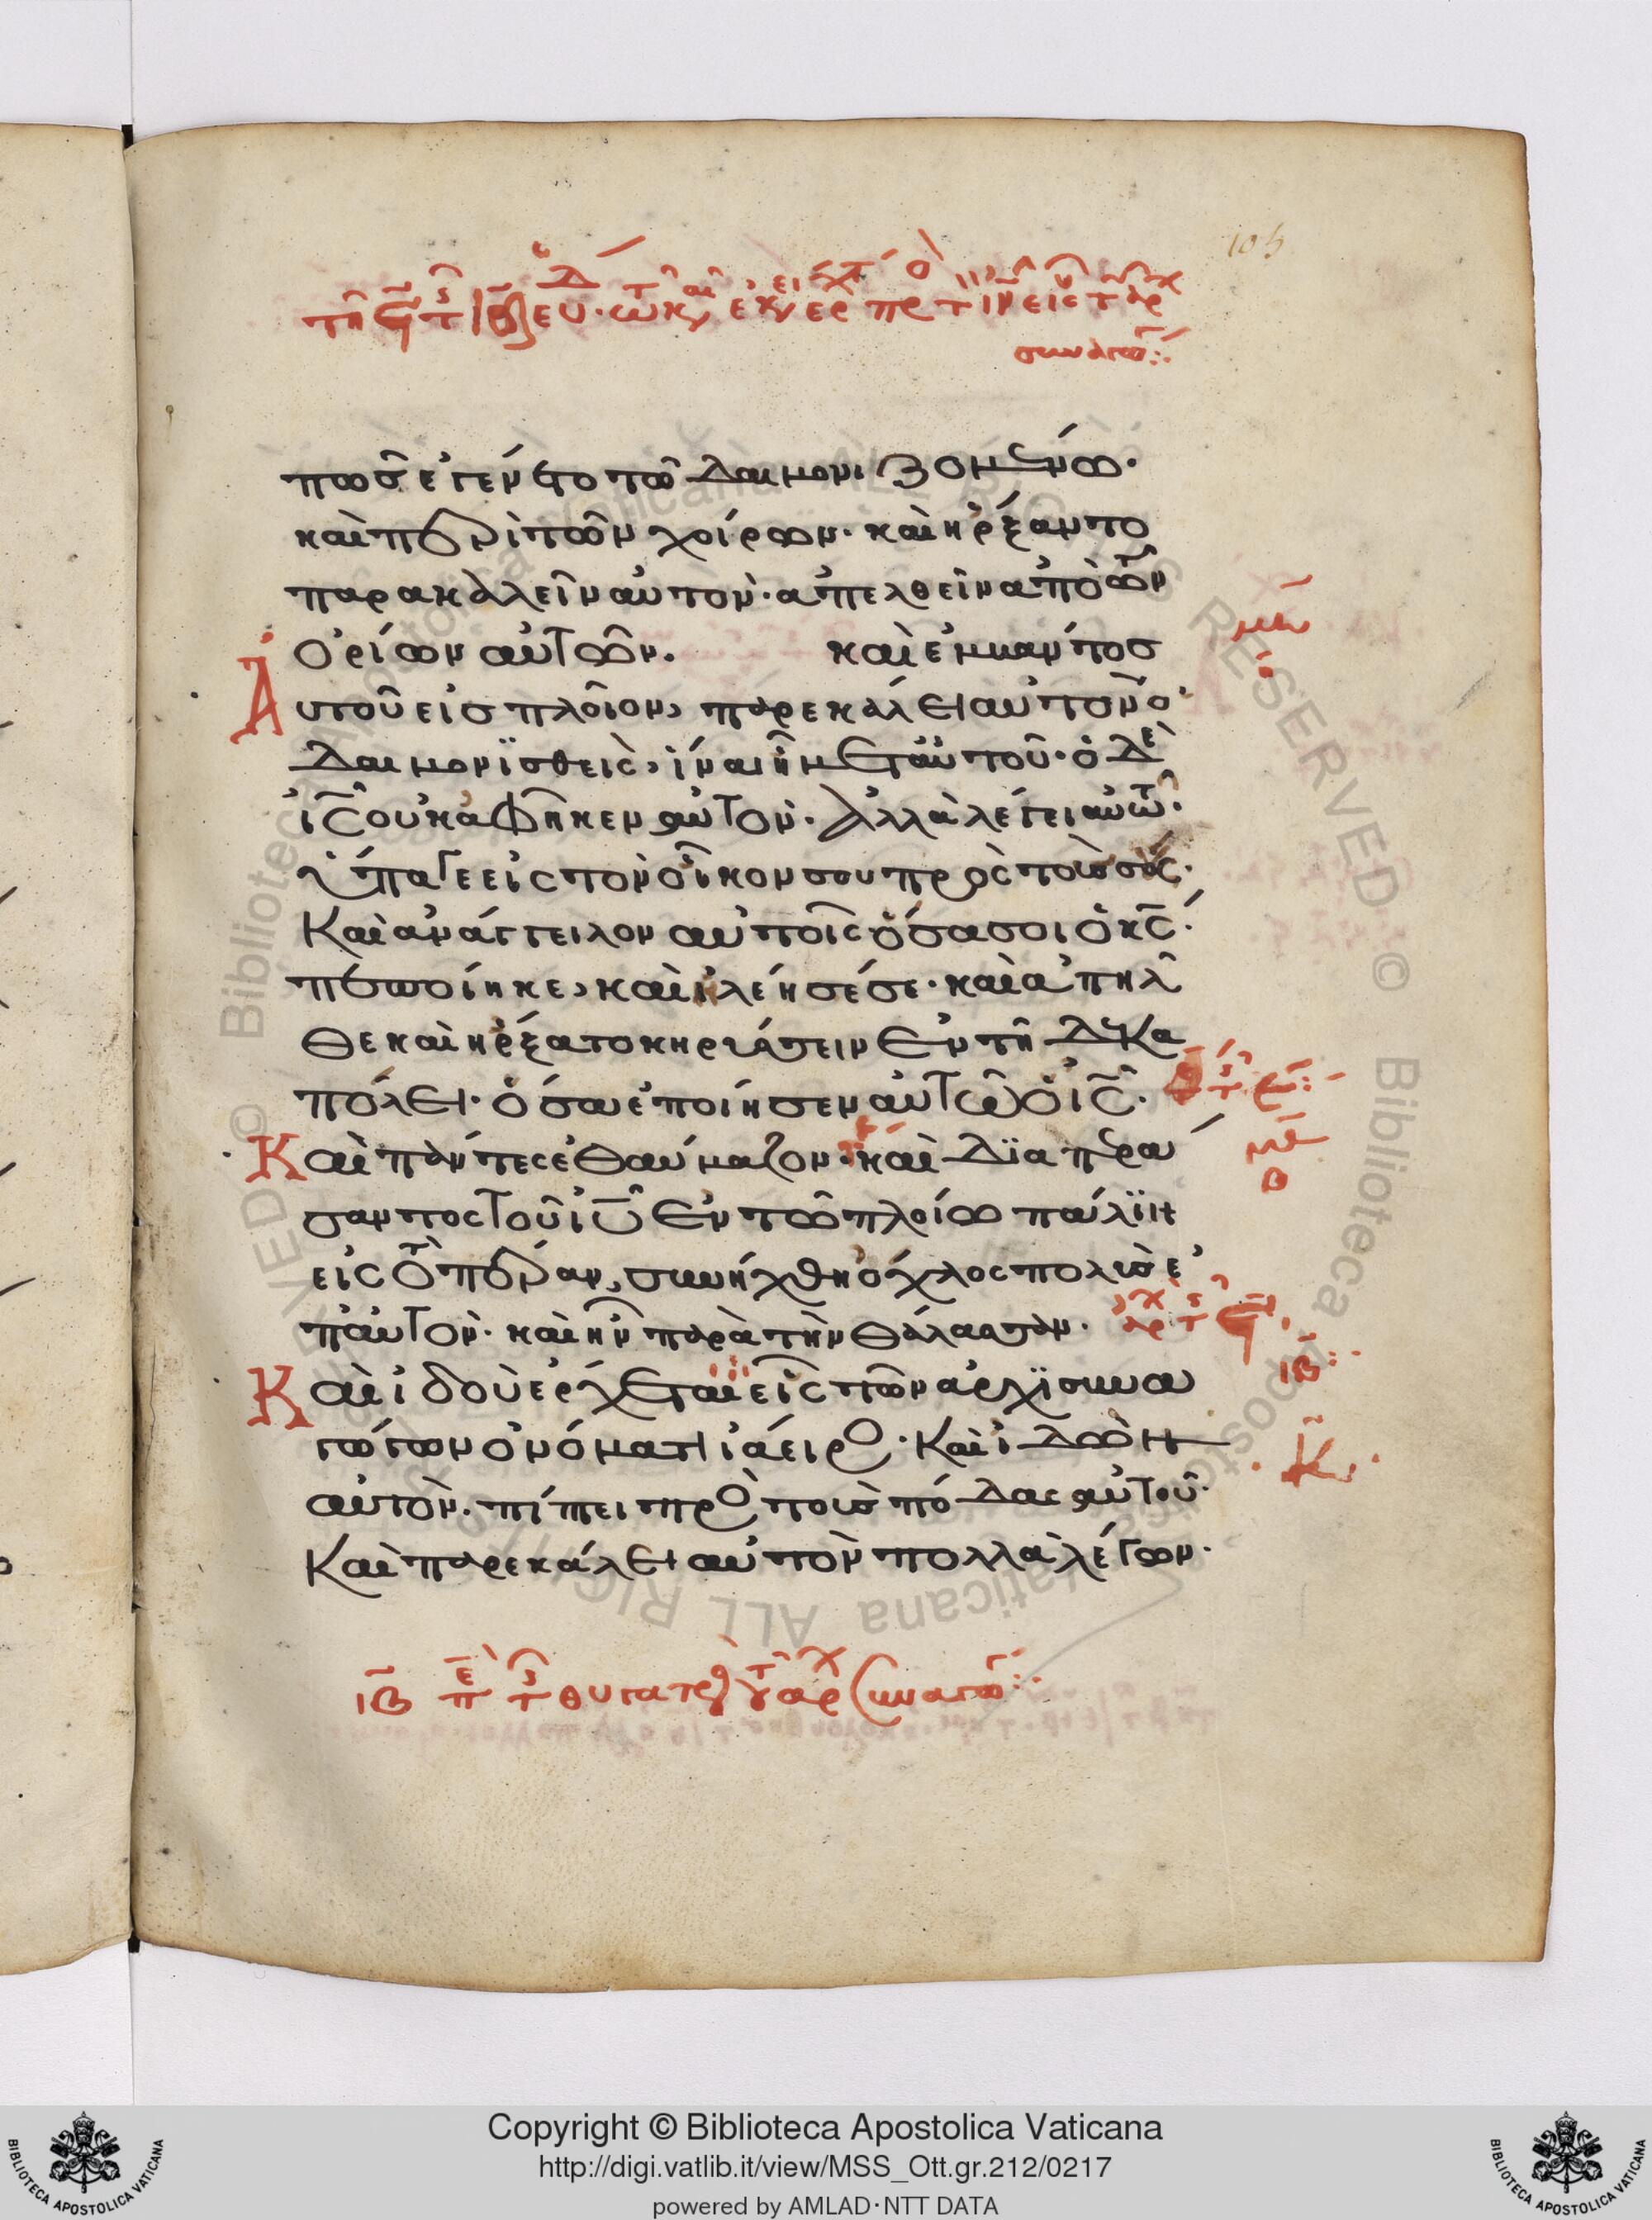 πῶς ἐγένετο τῶ δαιμονιζομένω·
καὶ περὶ τῶν χοίρων· καὶ ἤρξαντο
παρακαλεῖν αὐτὸν· ἀπελθεῖν ἀπὸ τῶν
ὁρίων αὐτῶν. καὶ ἐμβάντος
Αὐτοῦ εἰς πλοῖον, παρεκάλει αὐτὸν ὁ
δαιμονϊσθεὶς, ἵνα ἦ μετ' αὐτοῦ· ὁ δὲ
ἰς οὐκ ἀφῆκεν αὐτὸν· ἀλλὰ λέγει αὐτῶ·
ὕπαγε εἰς τὸν οἶκον σου πρὸς τοὺς σοὺς·
Καὶ ἀνάγγειλον αὐτοῖς ὅσα σοι ὁ κς
πεποίηκε, καὶ ἠλέησέ σε· καὶ ἀπῆλ
θε καὶ ἤρξατο κηρύσσειν ἐν τῆ δεκα
πόλει· ὅσα ἐποίησεν αὐτῶ ὁ ἰς·
Καὶ πάντες ἐθαύμαζον· καὶ δϊαπερά
σαντος τοῦ ἰυ ἐν τῶ πλοίω πάλϊν
εἰς τὸ πέραν, συνήχθη ὄχλος πολὺς ἐ
π' αὐτὸν· καὶ ἦν παρὰ τὴν θάλασσαν·
Καὶ ἰδοὺ ἔρχεται εἷς τῶν ἀρχϊσυνα
γώγων ὀνόματι ἰάειρος· Καὶ ἰδὼν
αὐτὸν· πίπτει πρὸς τοὺς πόδας αὐτοῦ·
Καὶ παρεκάλει αὐτὸν πολλὰ λέγων·
Copyright © Biblioteca Apostolica Vaticana
http://digi.vatlib.it/view/MSS_Ott.gr.212/0217
powered by AMLAD·NTT DATA